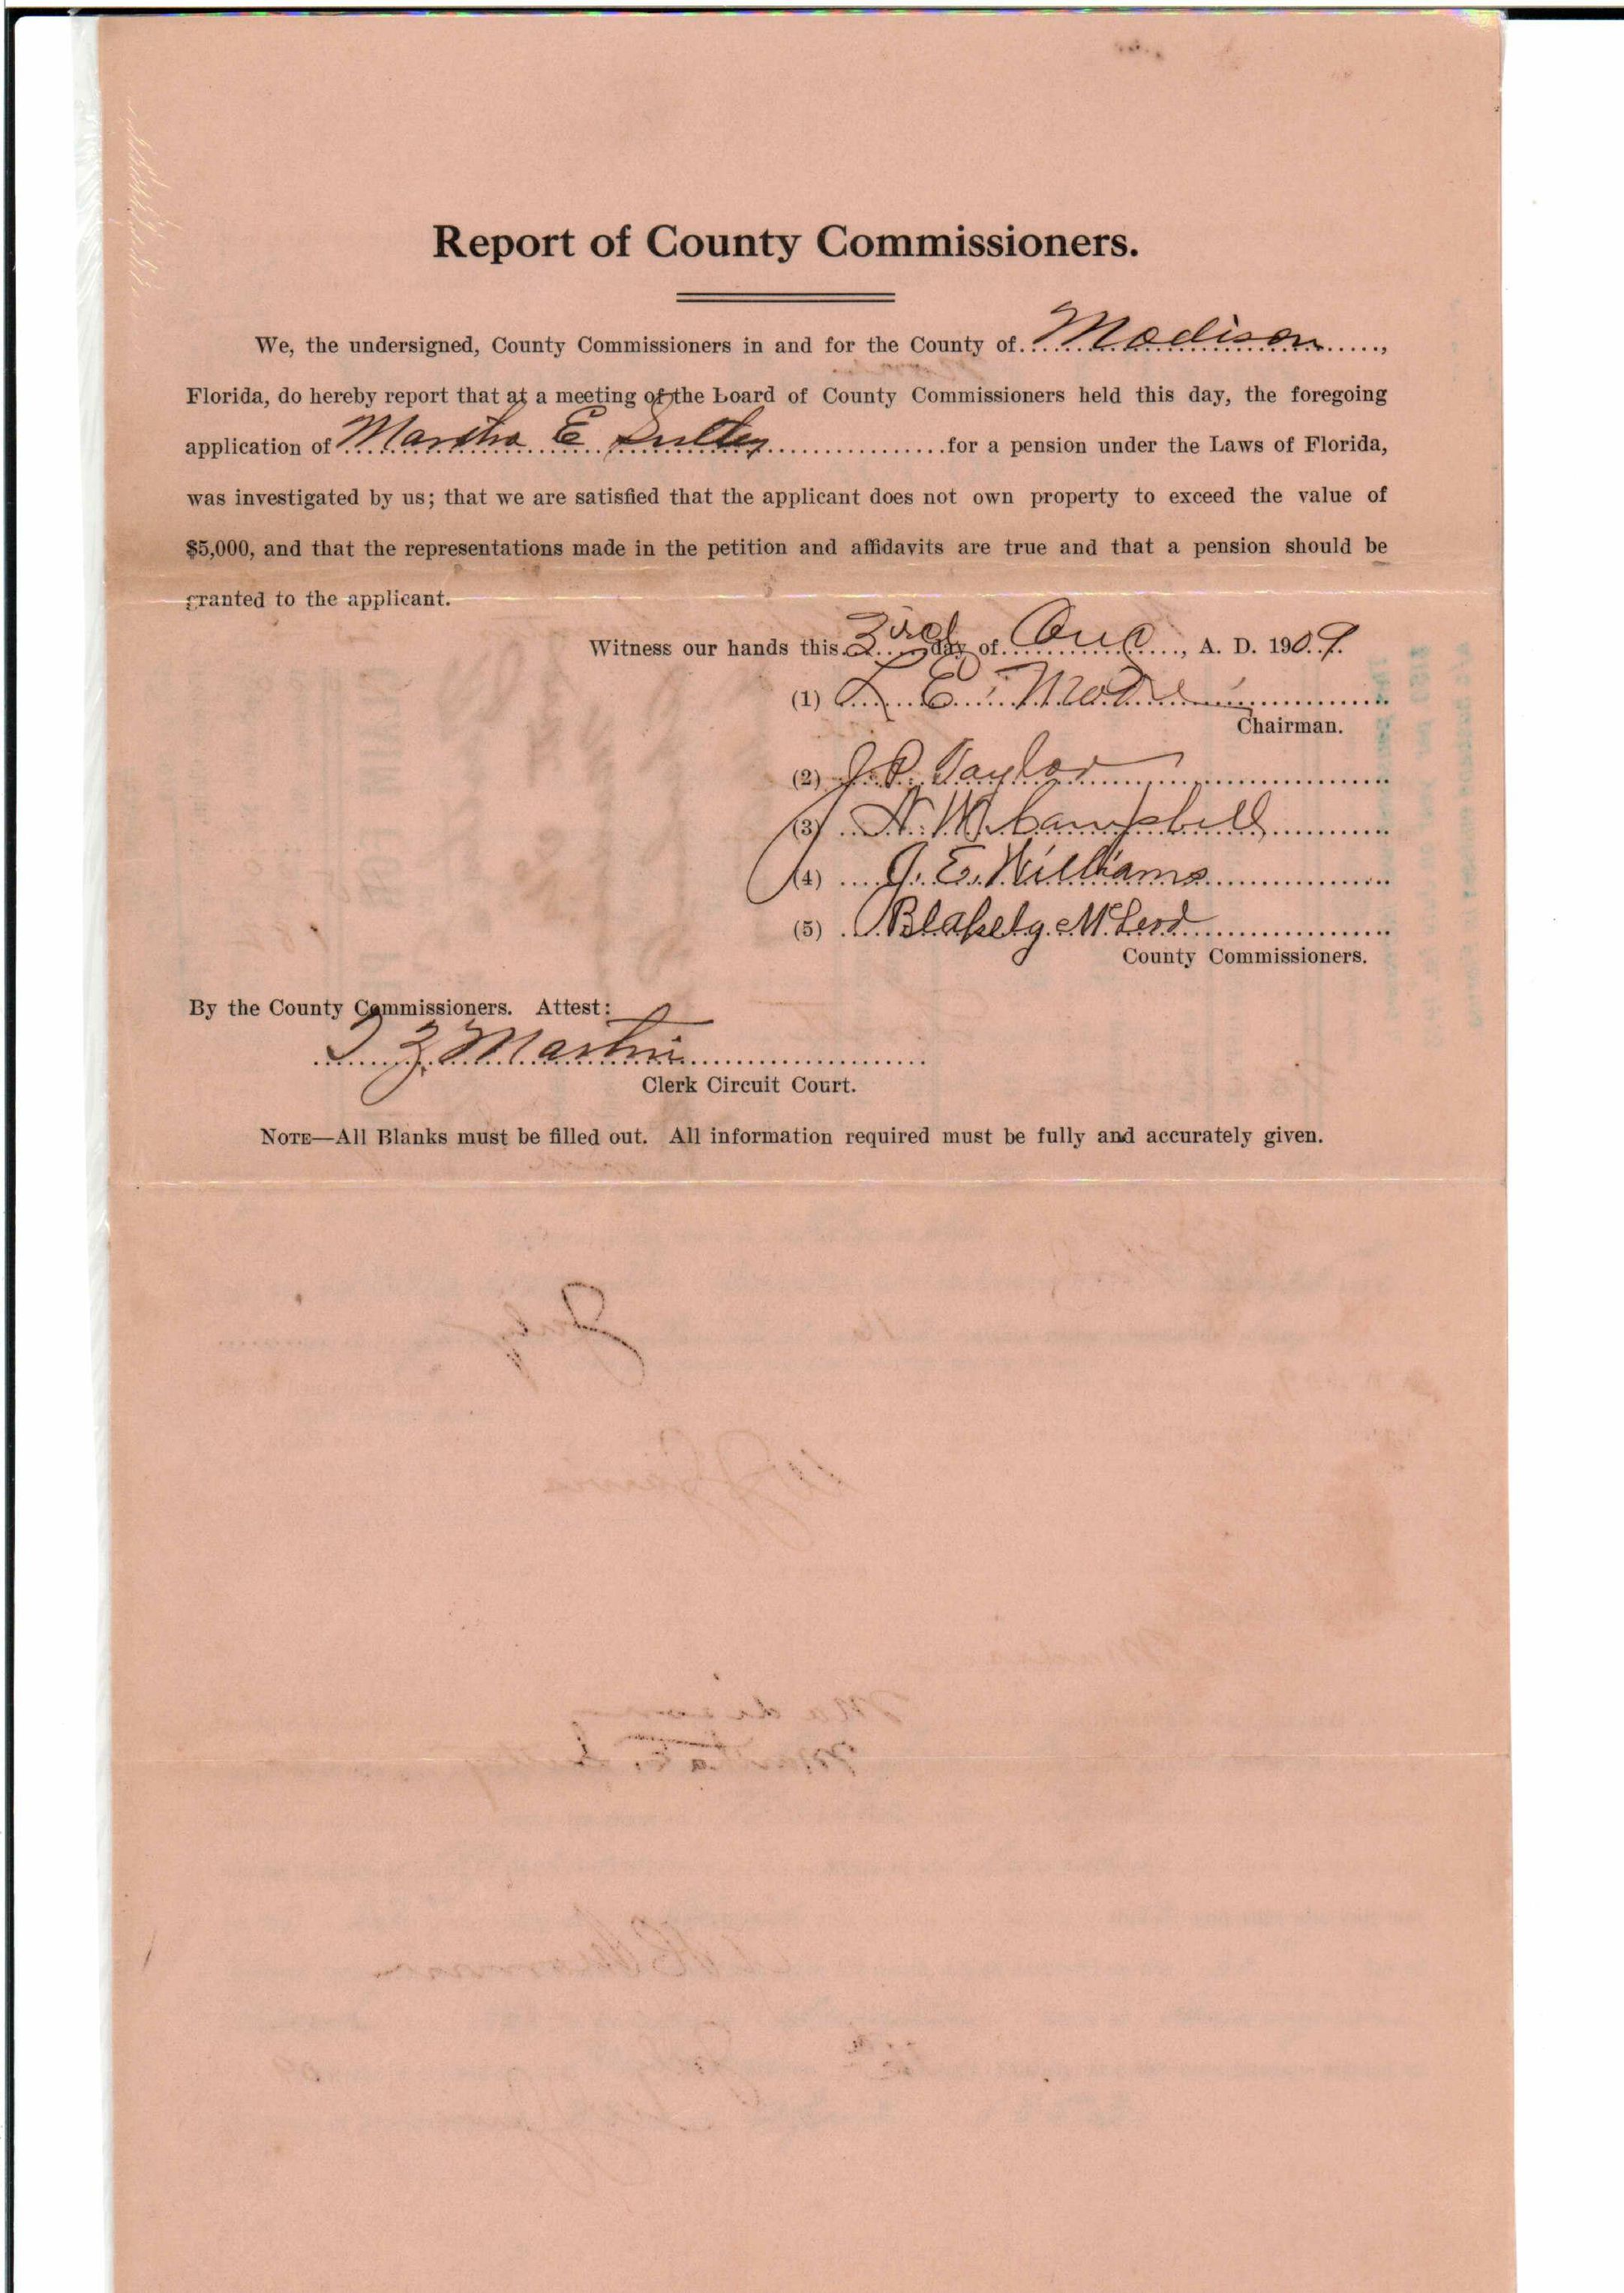 Report of County Commissioners.
We, the undersigned, County Commissioners in and for the County of Madison,
Florida, do hereby report that at a meeting of the board of County Commissioners held this day, the foregoing
application of Martha E for a pension under the Laws of Florida,
was investigated by us; that we are satisfied that the applicant does not own property to exceed the value of
$5,000, and that the representations made in the petition and affidavits are true and that a pension should be
granted to the applicant.
Witness our hands this 3rd day of Aug, A. D. 1909.
(1) L. E.
Chairman.
(2) J. P. Taylor
(3) N. W. Campbell
(4) J. E. Williams
(5) Blakely McLeod
County Commissioners.
By the County Commissioners. Attest:
Martin
Clerk Circuit Court.
NOTE—All Blanks must be filled out. All information required must be fully and accurately given.